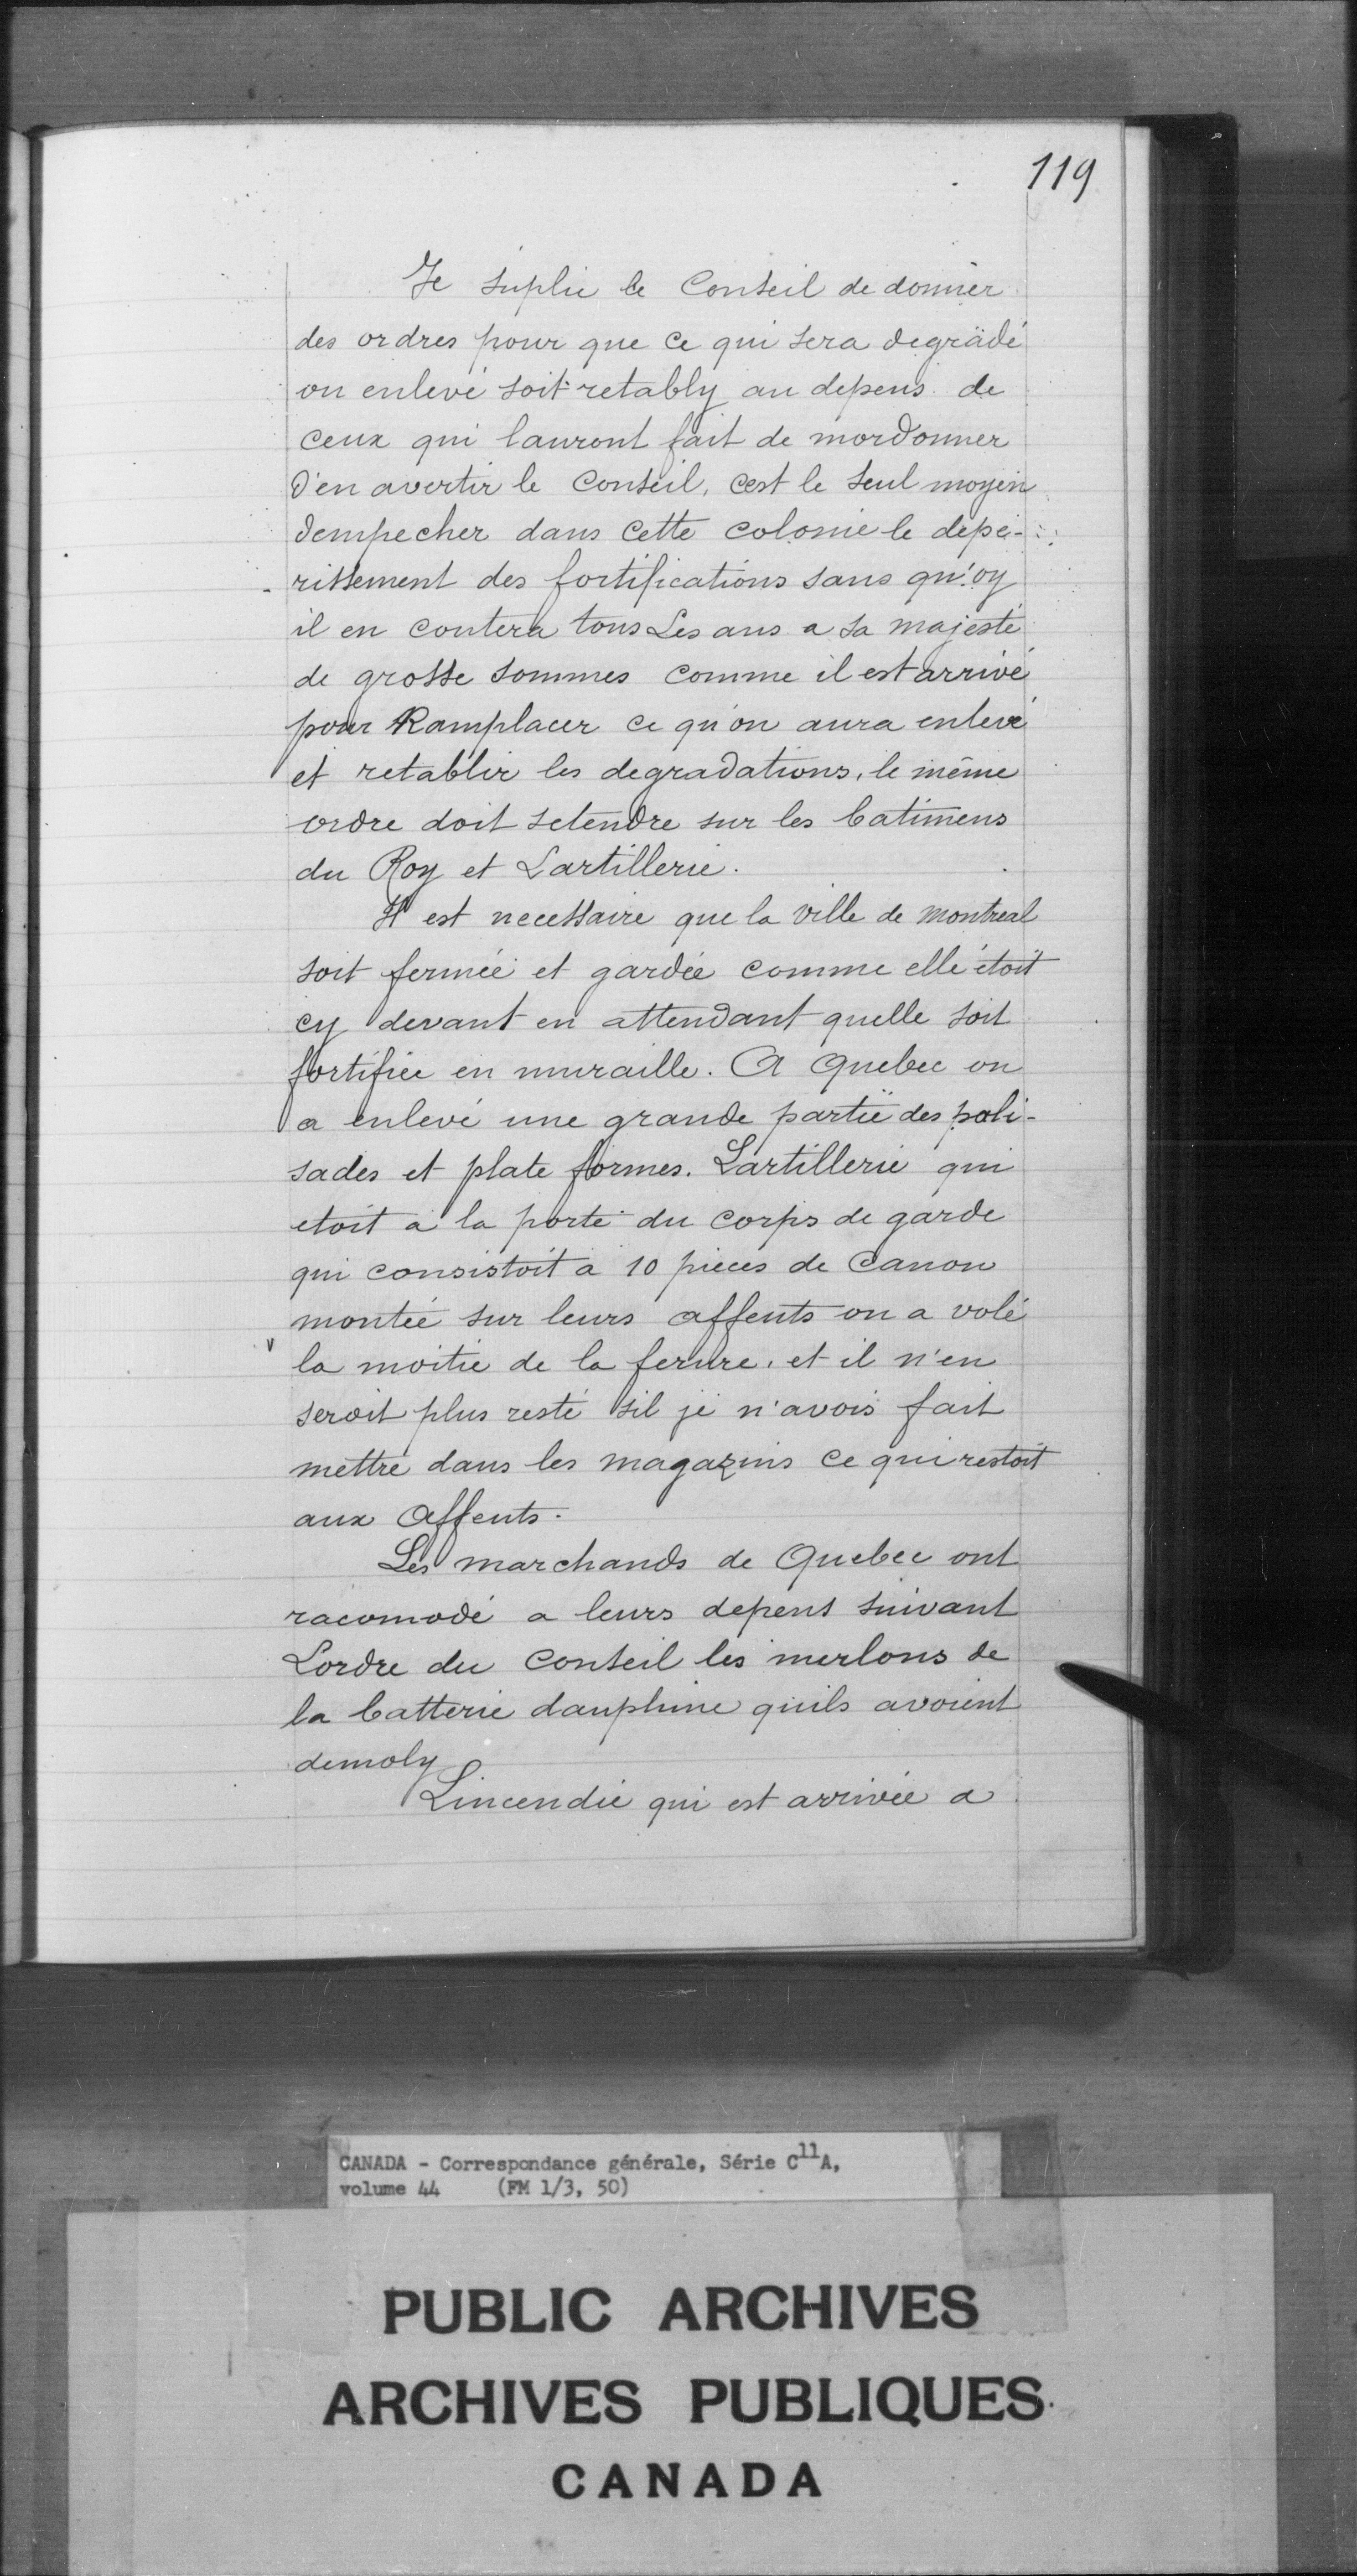 119
Je suplie le Conseil de donner
des ordres pour que ce qui sera degradé
ou enlevé soit retably au depens de
ceux qui lauront fait de mordonner
d'en avertir le Conseil, cest le seul moyen
dempecher dans cette colonie le depe-
rissement des fortifications sans qu'oy
il en contera tous Les ans a sa majesté
de grosse sommes comme il est arrivé
pour Ramplacer ce qu'on aura enlevé
et retablir les degradations, le même
ordre doit setendre sur les batimens
du Roy et Lartillerie.
Il est necessaire que la ville de montreal
soit fermée et gardée comme elle étoit
cy devant en attendant quelle soit
fortifiée en muraille. A Quebec on
a enlevé une grande partie des pali-
sades et plate formes. Lartillerie qui
etoit a la porte du corps de garde
qui consistoit a 10 pieces de Canon
montée sur leurs affeuts on a volé
la moitie de la ferure, et il n'en
seroit plus resté sil je n'avois fait
mettre dans les magazins ce qui restoit
aux affeuts.
Les marchands de Quebec ont
racomodé a leurs depens suivant
Lordre du Conseil les merlons de
la batterie dauphine quils avoient
demoly
Lincendie qui est arrivée a
CANADA - Correspondance générale, Série C11A,
volume 44 (FM 1/3, 50)
PUBLIC ARCHIVES
ARCHIVES PUBLIQUES
CANADA